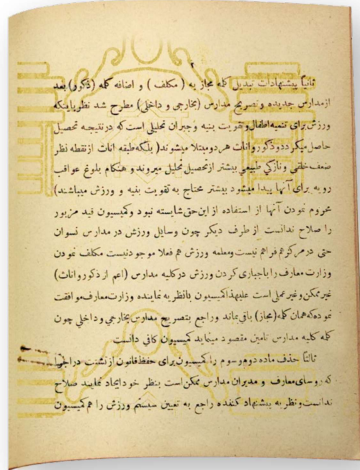 ۲
ثانیاً پیشنهادات تبدیل کلمه مجاز به ( مکلف ) و اضافه کلمه (ذکور) بعد
از مدارس جدیده و تصریح مدارس (بخارجی و داخلی) مطرح شد نظر باینکه
ورزش برای تنمیه اطفال و تقویت بنیه و جبران تحلیلی است که در نتیجه تحصیل
حاصل میگردد و ذکور و اناث هر دو مبتلا میشوند( بلکه طبقه اناث از نقطه نظر
ضعف خلقی و نازکی طبیعی بیشتر از تحصیل تحلیل میروند و هنگام بلوغ عواقب
رویه برای آنها پیدا میشود بیشتر محتاج به تقویت بنیه و ورزش میباشند)
محروم نمودن آنها از استفاده از این حق شایسته نبود و کمیسیون قید مزبور
را صلاح ندانست از طرف دیگر چون وسایل ورزش در مدارس نسوان
حتی در مرکز هم فراهم نیست و معلمه ورزش هم فعلا موجود نیست مکلف نمودن
وزارت معارف را باجباری کردن ورزش در کلیه مدارس (اعم از ذکور و اناث)
غیر ممکن و غیر عملی است علیهذا کمیسیون با نظریه نماینده وزارت معارف موافقت
نمود که همان کلمه (مجاز) باقی بماند و راجع بتصریح مدارس بخارجی و داخلی چون
کلمه کلیه مدارس تامین مقصود مینماید کمیسیون کافی دانست
ثالثاً حذف ماده دوم و سوم را کمیسیون برای حفظ قانون از تشتت در اجرا
که روسای معارف و مدیران مدارس ممکن است بنظر خود ایجاد نمایند صلاح
ندانست و نظر به پیشنهاد کننده راجع به تعیین سیستم ورزش را هم کمیسیون